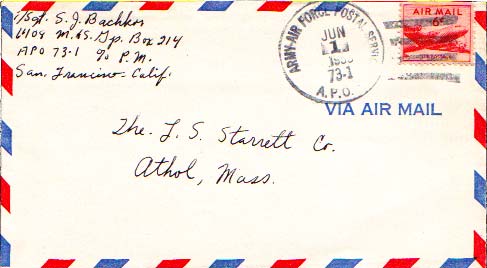 1/Sgt. S. J. Bachkos
1408 M. & S. Gp. Box 214
APO 73-1 % P.M.
San. Francisco. Calif.
ARMY-AIR FORCE POSTAL SERVICE
JUN
1
73-1
A.P.O.
AIR MAIL
6¢
VIA AIR MAIL
The. L. S. Starrett Co.
Athol, Mass.